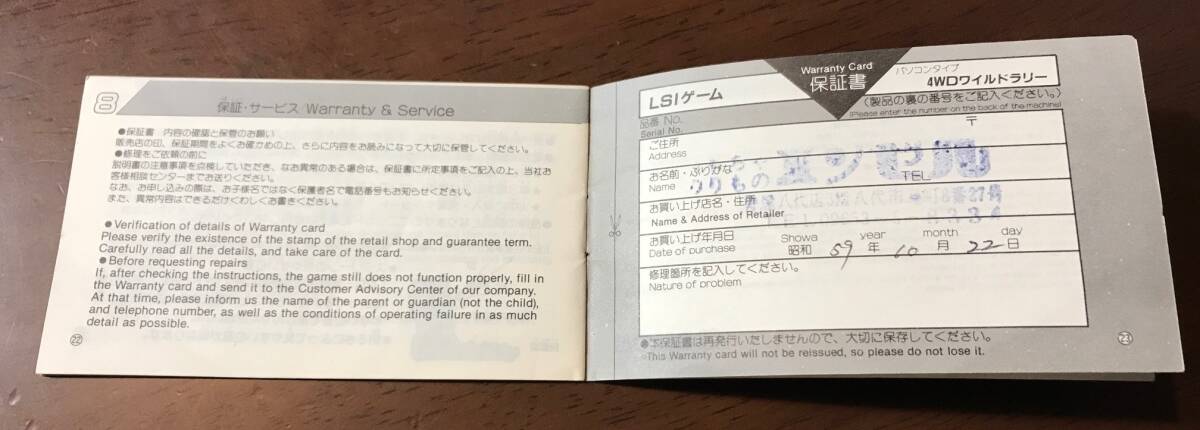 8
保証・サービス Warranty & Service
●保証書 内容の確認と保管のお願い
販売店の印、保証期間をよくお確かめの上、さらに内容をお読みになって大切に保管してください。
●修理をご依頼の前に
説明書の注意事項を点検していただき、なお異常のある場合は、保証書に所定事項をご記入の上、当社お
客様相談センターまでお送りください。
なお、お申し込みの際は、お子様名ではなく保護者名で電話番号もお知らせください。
また、異常内容はできるだけくわしくお書きください。
●Verification of details of Warranty card
Please verify the existence of the stamp of the retail shop and guarantee term.
Carefully read all the details, and take care of the card.
●Before requesting repairs
If, after checking the instructions, the game still does not function properly, fill in
the Warranty card and send it to the Customer Advisory Center of our company.
At that time, please inform us the name of the parent or guardian (not the child),
and telephone number, as well as the conditions of operating failure in as much
detail as possible.
22
LSIゲーム
Warranty Card
保証書
パソコンタイプ
4WDワイルドラリー
品番 No.
Serial No.
(製品の裏の番号をご記入ください。)
(Please enter the number on the back of the machine)
ご住所
Address
〒
お名前・ふりがな
Name
TEL
のりもの
お買い上げ店名・住所
Name & Address of Retailer
八代店3階 八代市 町8番27号
お買い上げ年月日
Date of purchase
Showa year month day
昭和 59 年 10 月 22 日
修理箇所を記入してください。
Nature of problem
●本保証書は再発行いたしませんので、大切に保存してください。
○This Warranty card will not be reissued, so please do not lose it.
23